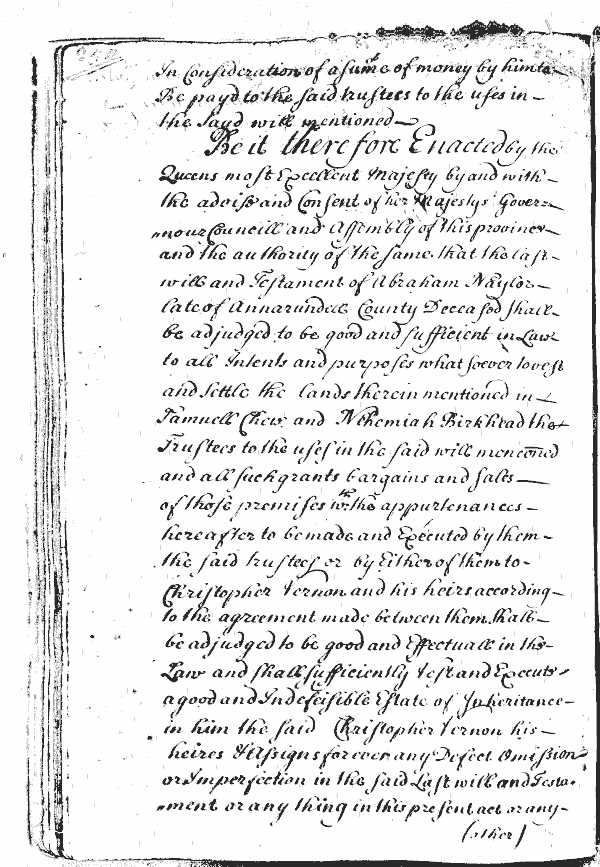 In Consideration of a sume of money by him to
Be payd to the said trustees to the uses in
the Sayd will mentioned
Be it therefore Enacted by the
Queens most Excellent Majesty by and with
the advise and Consent of her Majestys Gover
nour Councill and Assembly of this province
and the authority of the same that the last
will and Testament of Abraham Naylor
late of Annarundell County Deceased shall
be adjudged to be good and sufficient in Law
to all Intents and purposes whatsoever to vest
and settle the lands therein mentioned in
Samuell Chew and Nehemiah Birkhead the
Trustees to the uses in the said will menconed
and all such grants bargains and sales
of those premises wth the appurtenances
hereafter to be made and Executed by them
the said trustees or by Either of them to
Christopher Vernon and his heirs according
to the agreement made between them shall
be adjudged to be good and Effectuall in the
Law and shall sufficiently Vest and Execute
a good and Indefeisible Estate of Inheritance
in him the said Christopher Vernon his
heires & Assigns for ever any Defect Omission
or Imperfection in the said Last will and Testa
ment or any thing in this present act or any
(other)